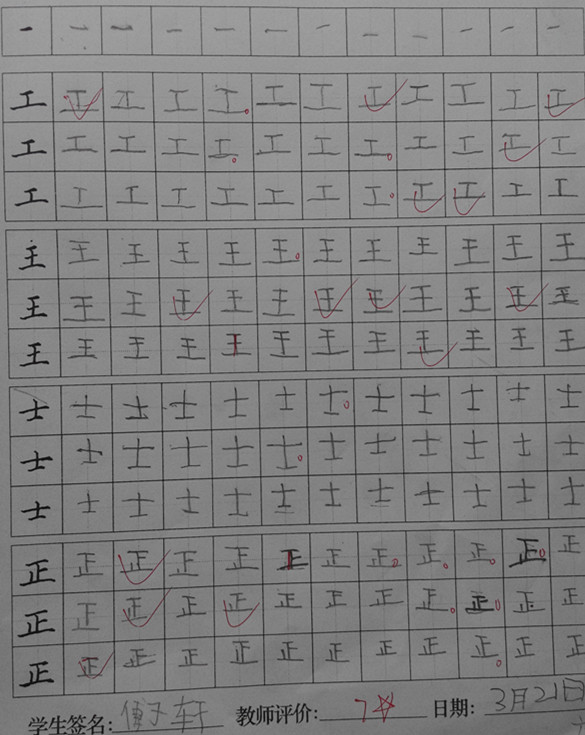 一一一一一一一一一一一一
工工工工工工工工工工工工
工工工工工工工工工工工工
工工工工工工工工工工工工
王王王王王王王王王王王王
王王王王王王王王王王王王
王王王王王王王王王王王王
士士士士士士士士士士士士
士士士士士士士士士士士士
士士士士士士士士士士士士
正正正正正正正正正正正正
正正正正正正正正正正正正
正正正正正正正正正正正正
学生签名: 子轩 教师评价: 7☆ 日期: 3月21日